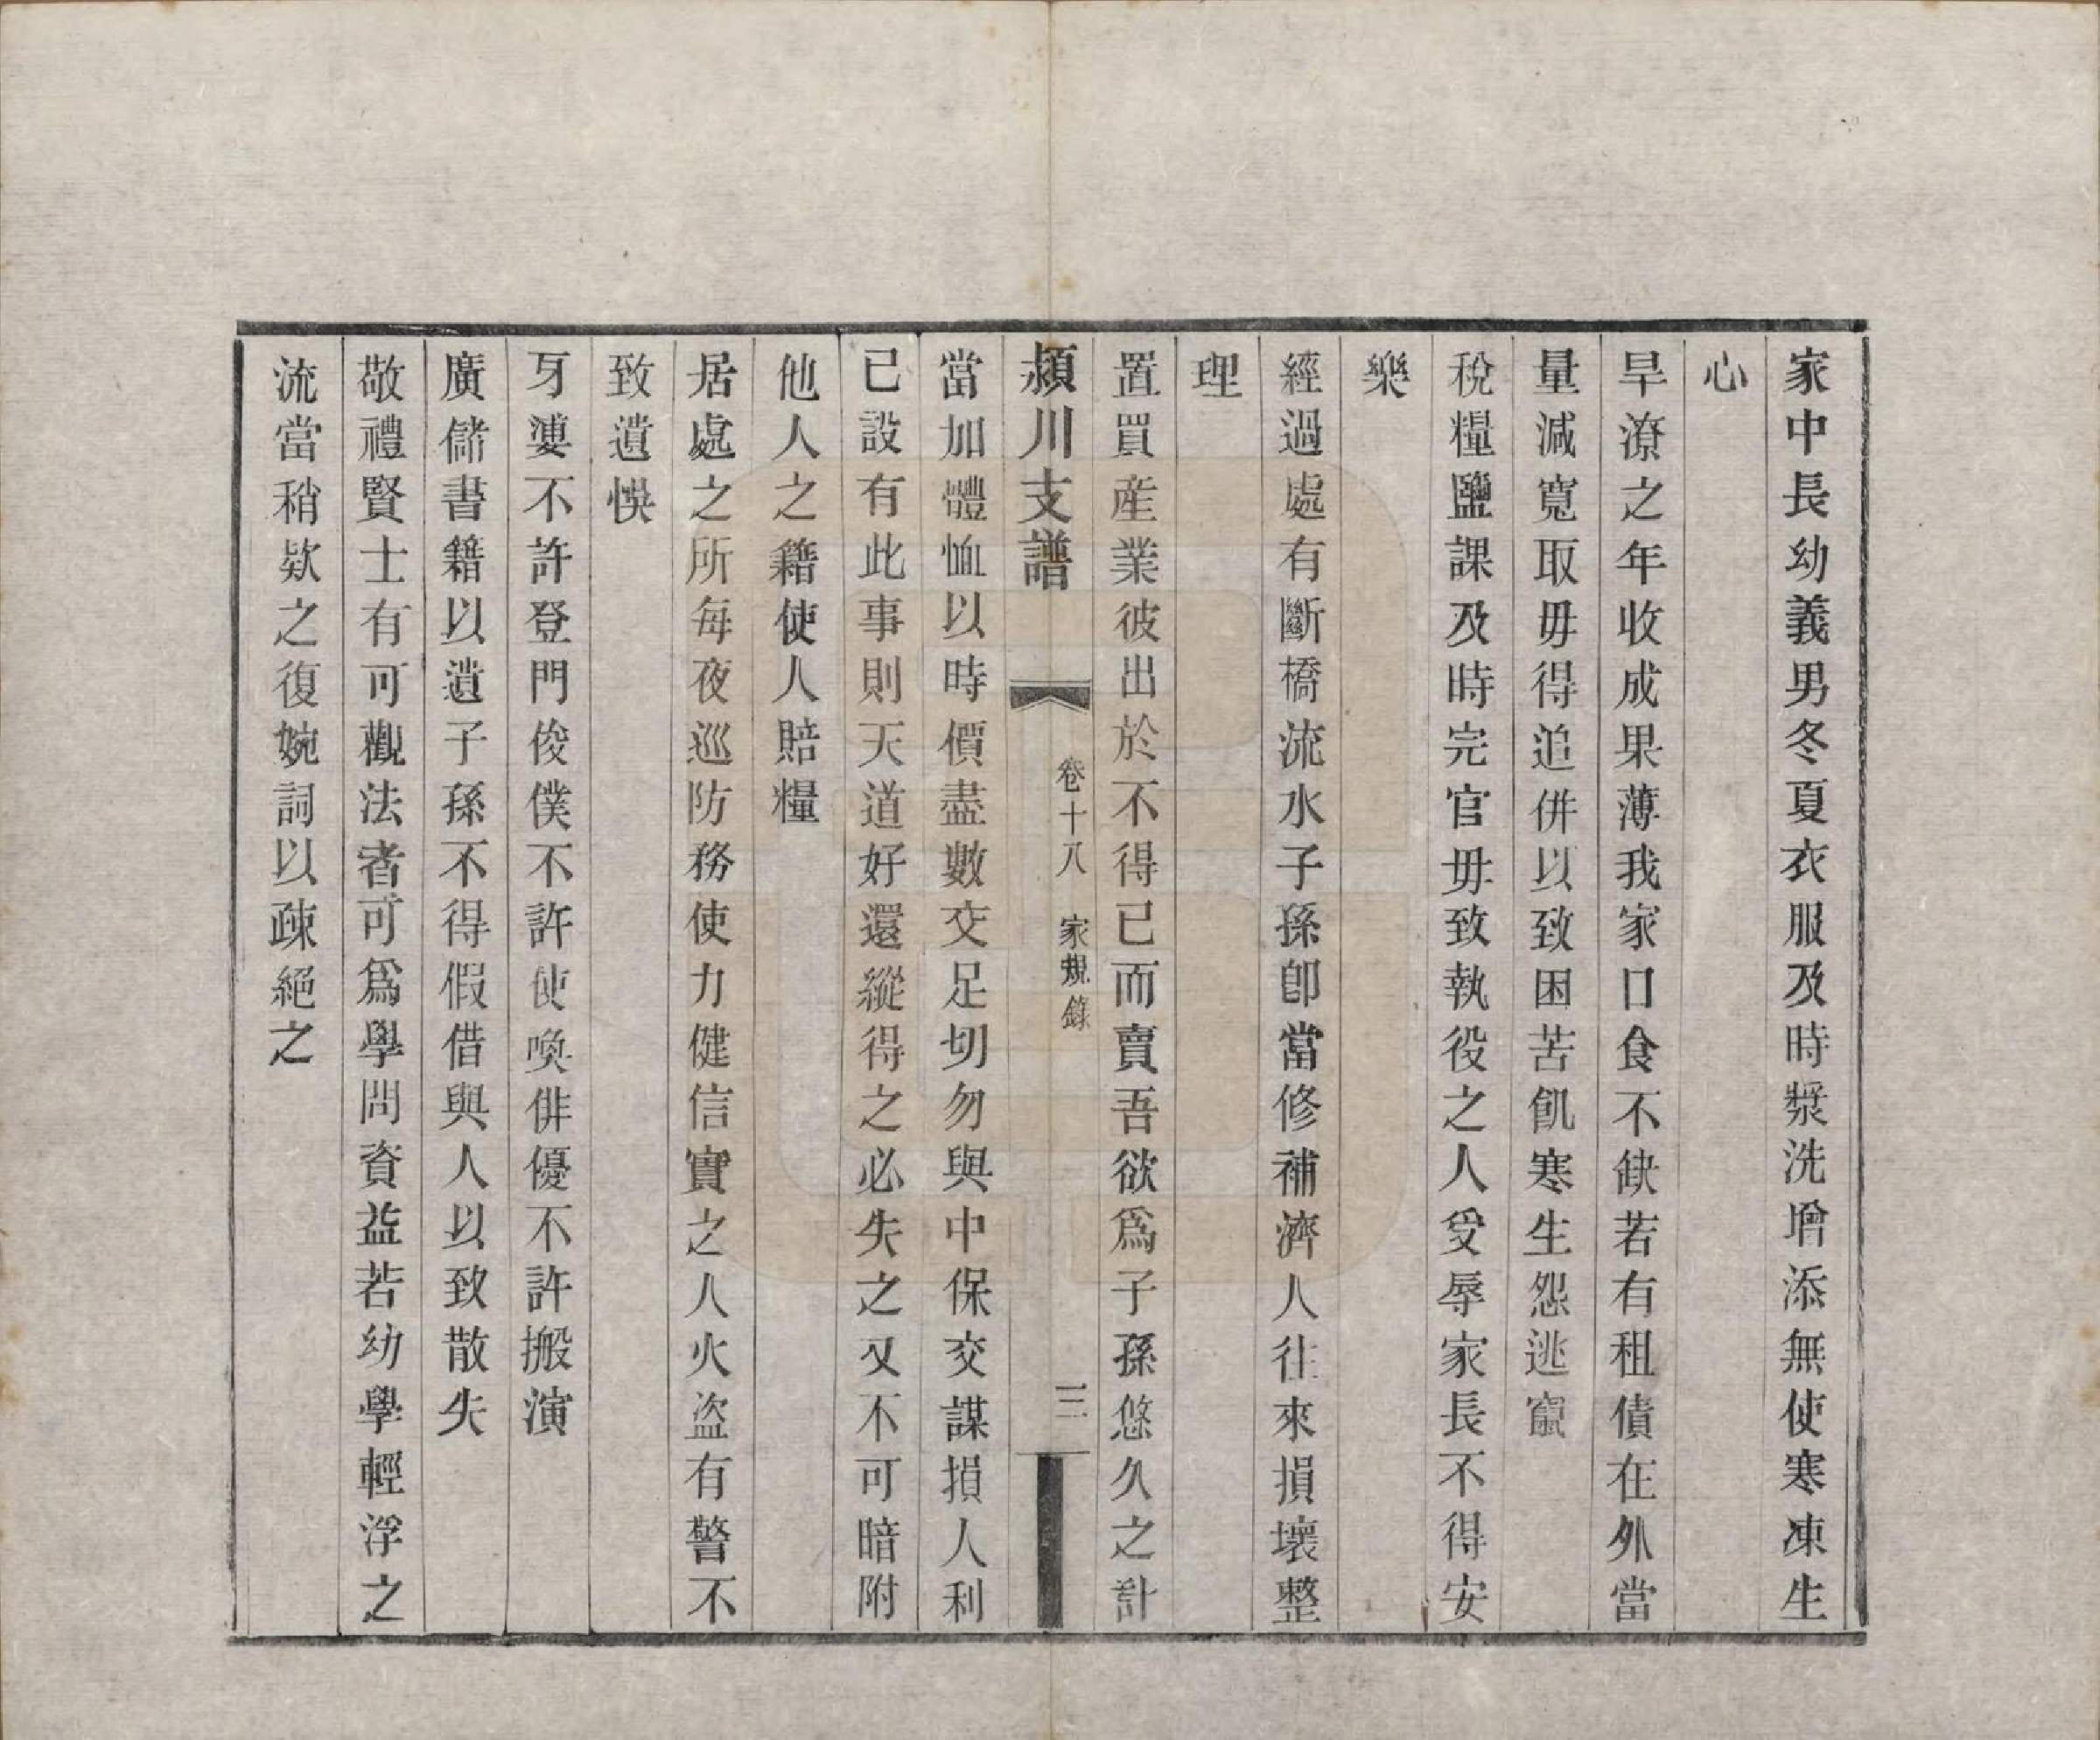 家中長幼義男冬夏衣服及時漿洗增添無使寒凍生
心
旱潦之年收成果薄我家口食不缺若有租債在外當
量減寬取毋得追併以致困苦飢寒生怨逃竄
稅糧鹽課及時完官毋致執役之人受辱家長不得安
樂
經過處有斷橋流水子孫卽當修補濟人往來損壞整
理
置買産業彼出於不得已而賣吾欲爲子孫悠久之計
潁川支譜
卷十八
家規錄
三
當加體恤以時價盡數交足切勿與中保交謀損人利
已設有此事則天道好還縱得之必失之又不可暗附
他人之籍使人賠糧
居處之所每夜巡防務使力健信實之人火盗有警不
致遺悞
牙婆不許登門俊僕不許使喚俳優不許搬演
廣儲書籍以遺子孫不得假借與人以致散失
敬禮賢士有可觀法者可爲學問資益若幼學輕浮之
流當稍欵之復婉詞以疎絕之